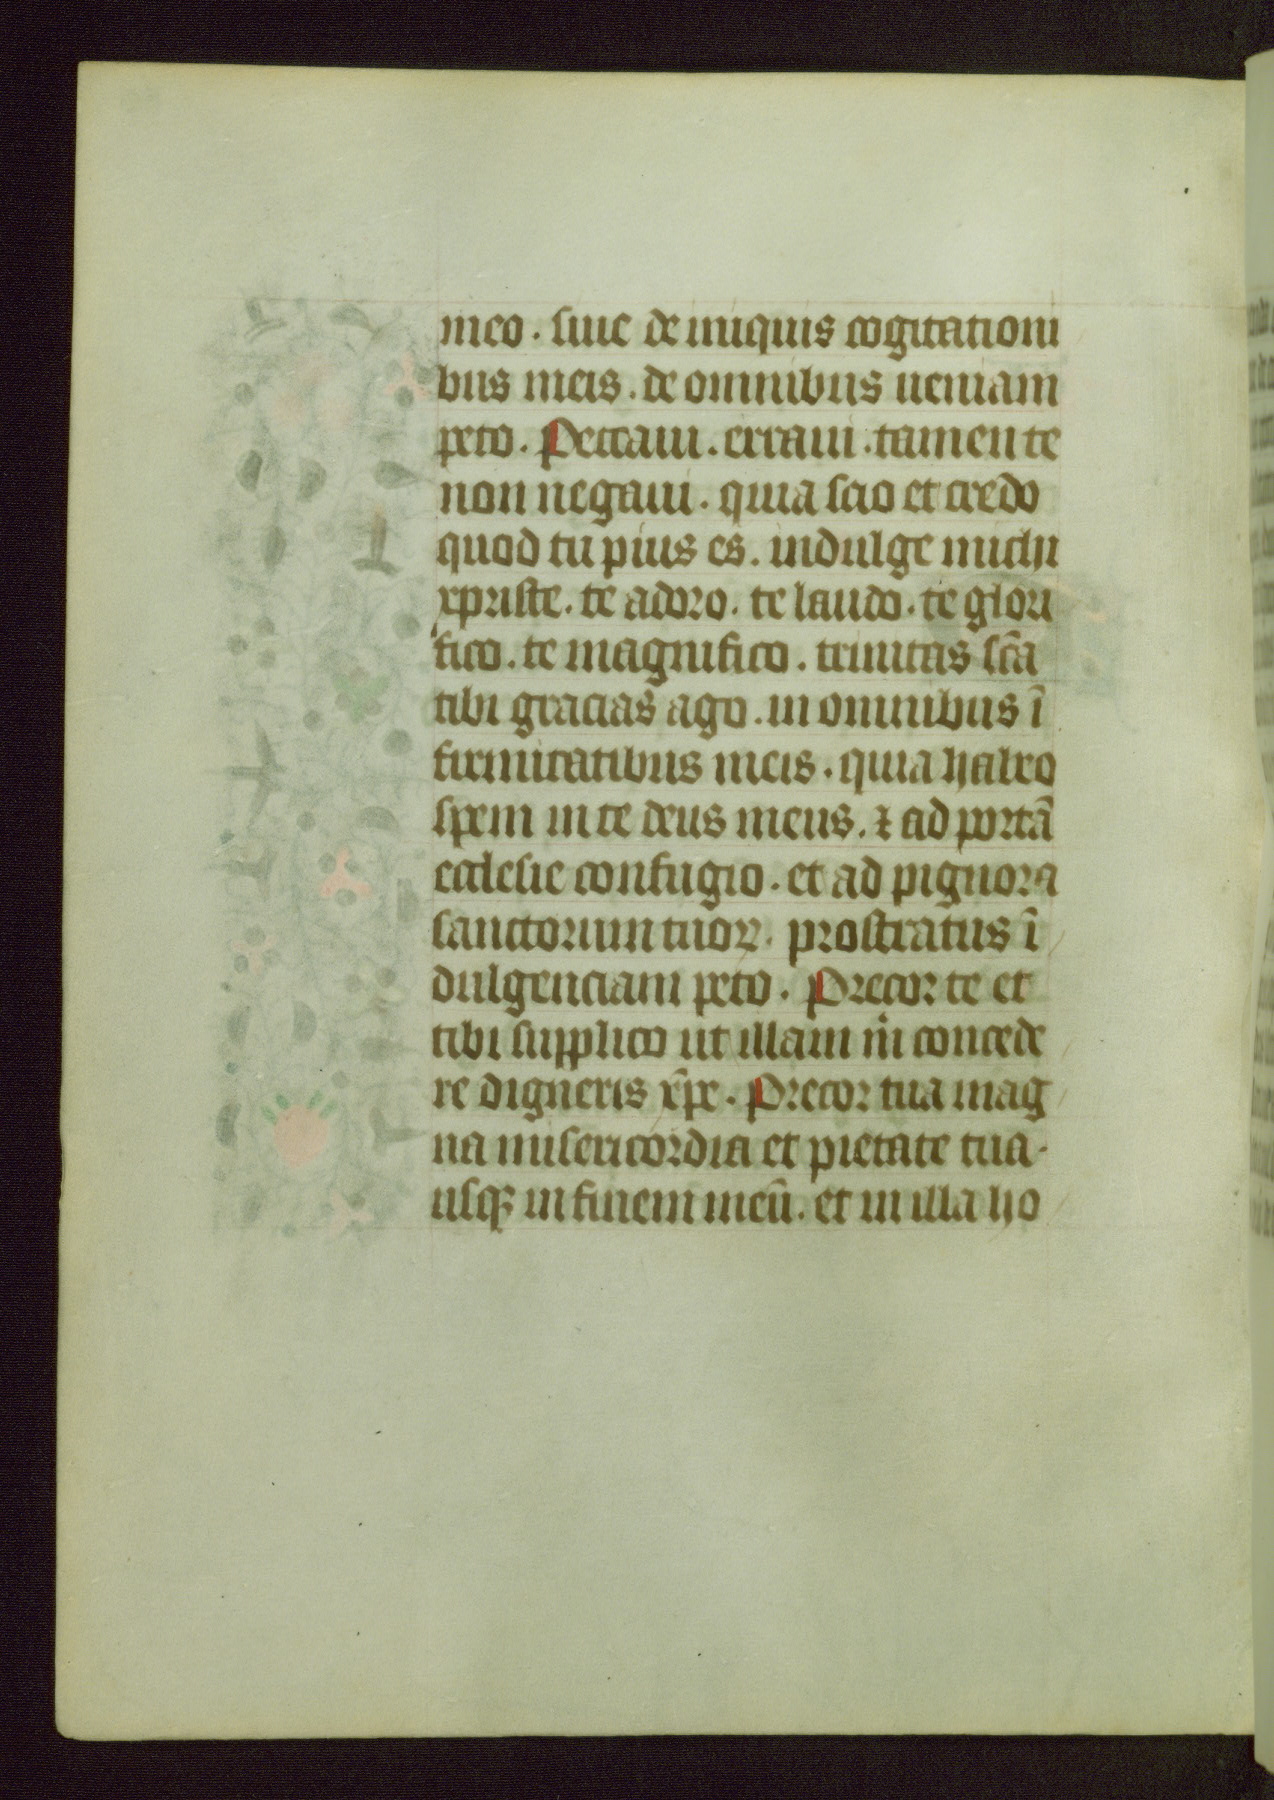 meo. siue de iniquis cogitationi
bus meis. de omnibus ueniam
peto. Peccaui. erraui. tamen te
non negaui. quia scio et credo
quod tu pius es. indulge michi
xpriste. te adoro. te laudo. te glori
fico. te magnifico. trinitas sc̃a
tibi gracias ago. in omnibus ī
firmitatibus meis. quia habeo
spem in te deus meus. ⁊ ad portā
ecclesie confugio. et ad pignora
sanctorum tuoꝝ. prostratus ī
dulgenciam peto. Precor te et
tibi supplico ut illam m̃i concede
re digneris xp̃e. Precor tua mag
na misericordia et pietate tua.
usqꝫ in finem meū. et in illa ho